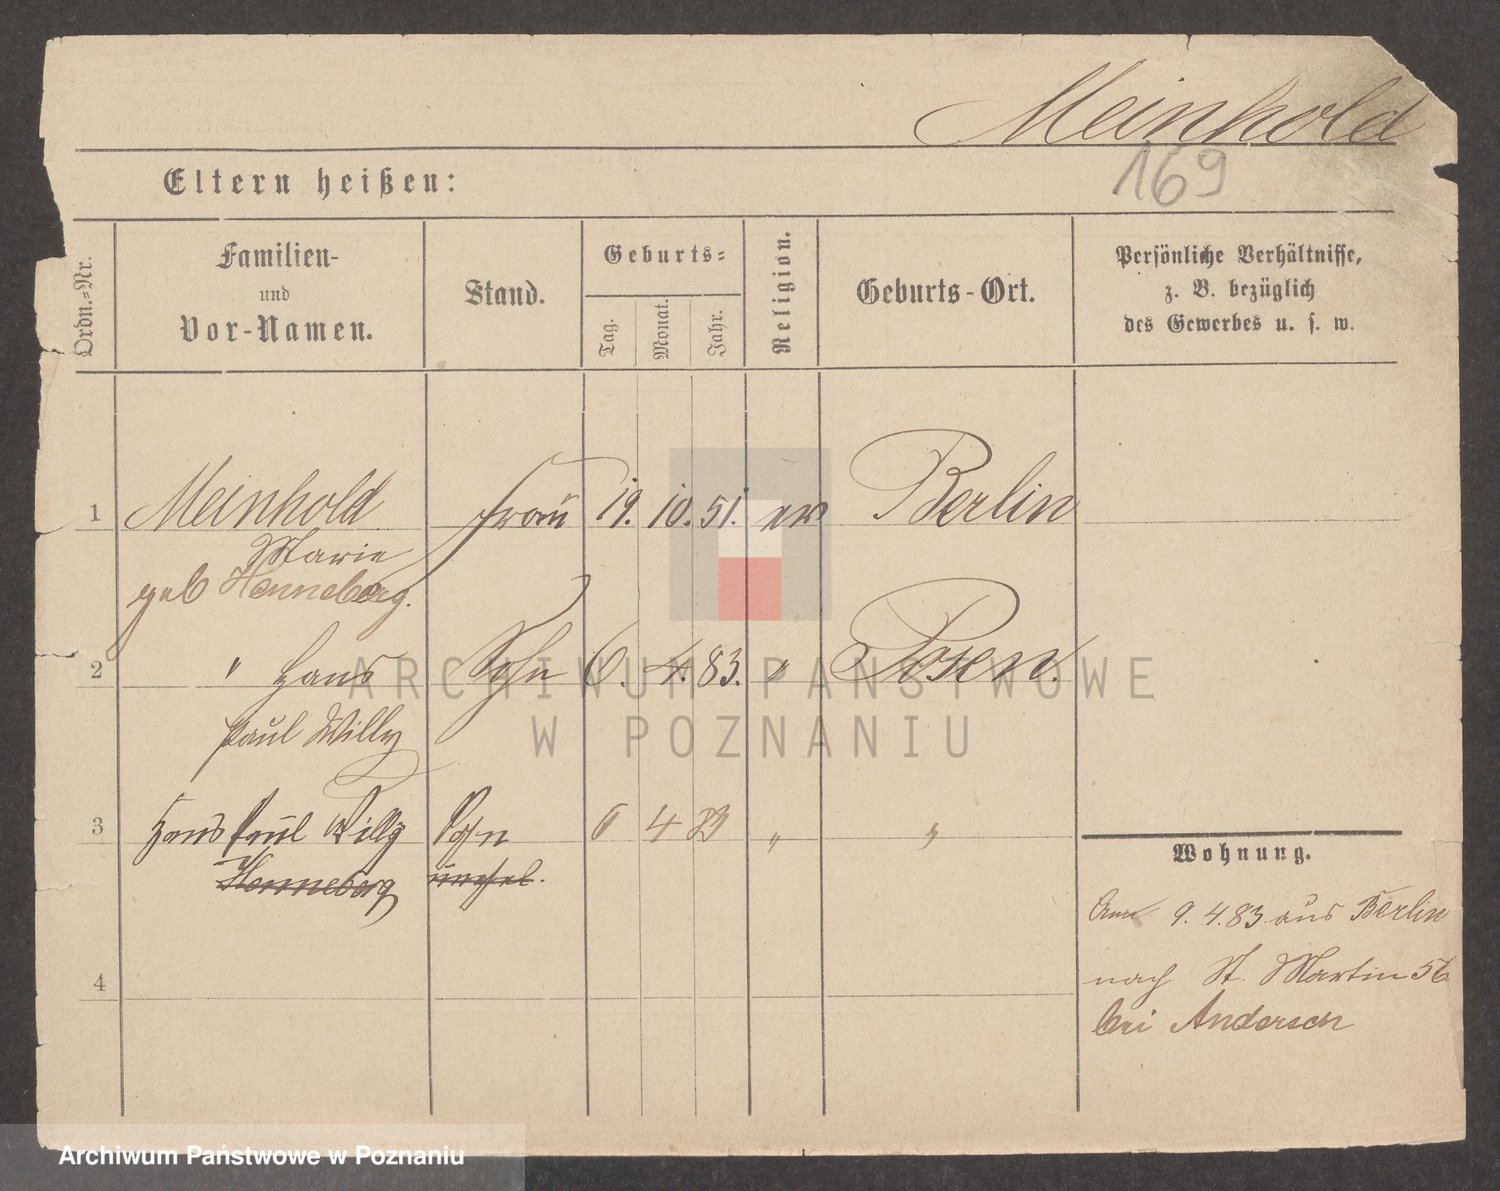 Meinhold
169
Eltern heißen:
Ordn.=Nr.
Familien-
und
Vor-Namen.
Stand.
Geburts=
Tag.
Monat.
Jahr.
Religion.
Geburts-Ort.
Persönliche Verhältnisse,
z. B. bezüglich
des Gewerbes u. s. w.
1 Meinhold Frau 19. 10. 51. ev Berlin
Marie
geb Henneberg.
2 " Hans Sohn 6. 4. 83. " Posen.
Paul Willy
3 Hans Paul Willy Sohn 6 4 83 " "
Henneberg unehel.
4
Wohnung.
9. 4. 83. aus Berlin
nach St. Martin 56
bei Andersch
ARCHIWUM PAŃSTWOWE
W POZNANIU
Archiwum Państwowe w Poznaniu